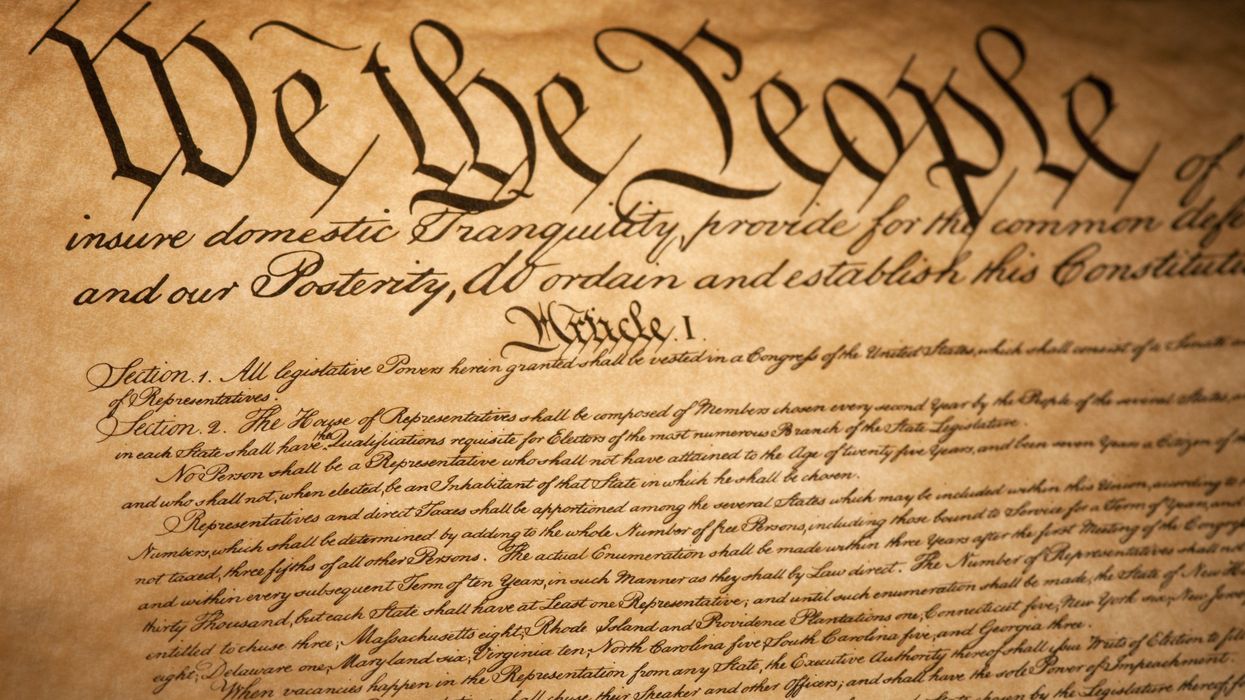 We the People of
insure domestic Tranquility, provide for the common
and our Posterity, do ordain and establish this
Article. I.
Section. 1. All legislative Powers herein granted shall be vested in a Congress of the United States, which shall consist of a Senate
of Representatives.
Section. 2. The House of Representatives shall be composed of Members chosen every second Year by the People of the several States,
in each State shall have the Qualifications requisite for Electors of the most numerous Branch of the State Legislature.
No Person shall be a Representative who shall not have attained to the Age of twenty five Years, and been seven Years a Citizen of
and who shall not, when elected, be an Inhabitant of that State in which he shall be chosen.
Representatives and direct Taxes shall be apportioned among the several States which may be included within this Union, according to
Numbers, which shall be determined by adding to the whole Number of free Persons, including those bound to Service for a Term of Years, and
not taxed, three fifths of all other Persons. The actual Enumeration shall be made within three Years after the first Meeting of the
and within every subsequent Term of ten Years, in such Manner as they shall by Law direct. The Number of Representatives shall not
thirty Thousand, but each State shall have at Least one Representative; and until such enumeration shall be made, the State of New
entitled to chuse three, Massachusetts eight, Rhode Island and Providence Plantations one, Connecticut five, New York six, New Jersey
eight, Delaware one, Maryland six, Virginia ten, North Carolina five, South Carolina five, and Georgia three.
When vacancies happen in the Representation from any State, the Executive Authority thereof shall issue Writs of Election to fill
shall chuse their Speaker and other Officers; and shall have the sole Power of Impeachment.
chosen by the Legislature thereof,